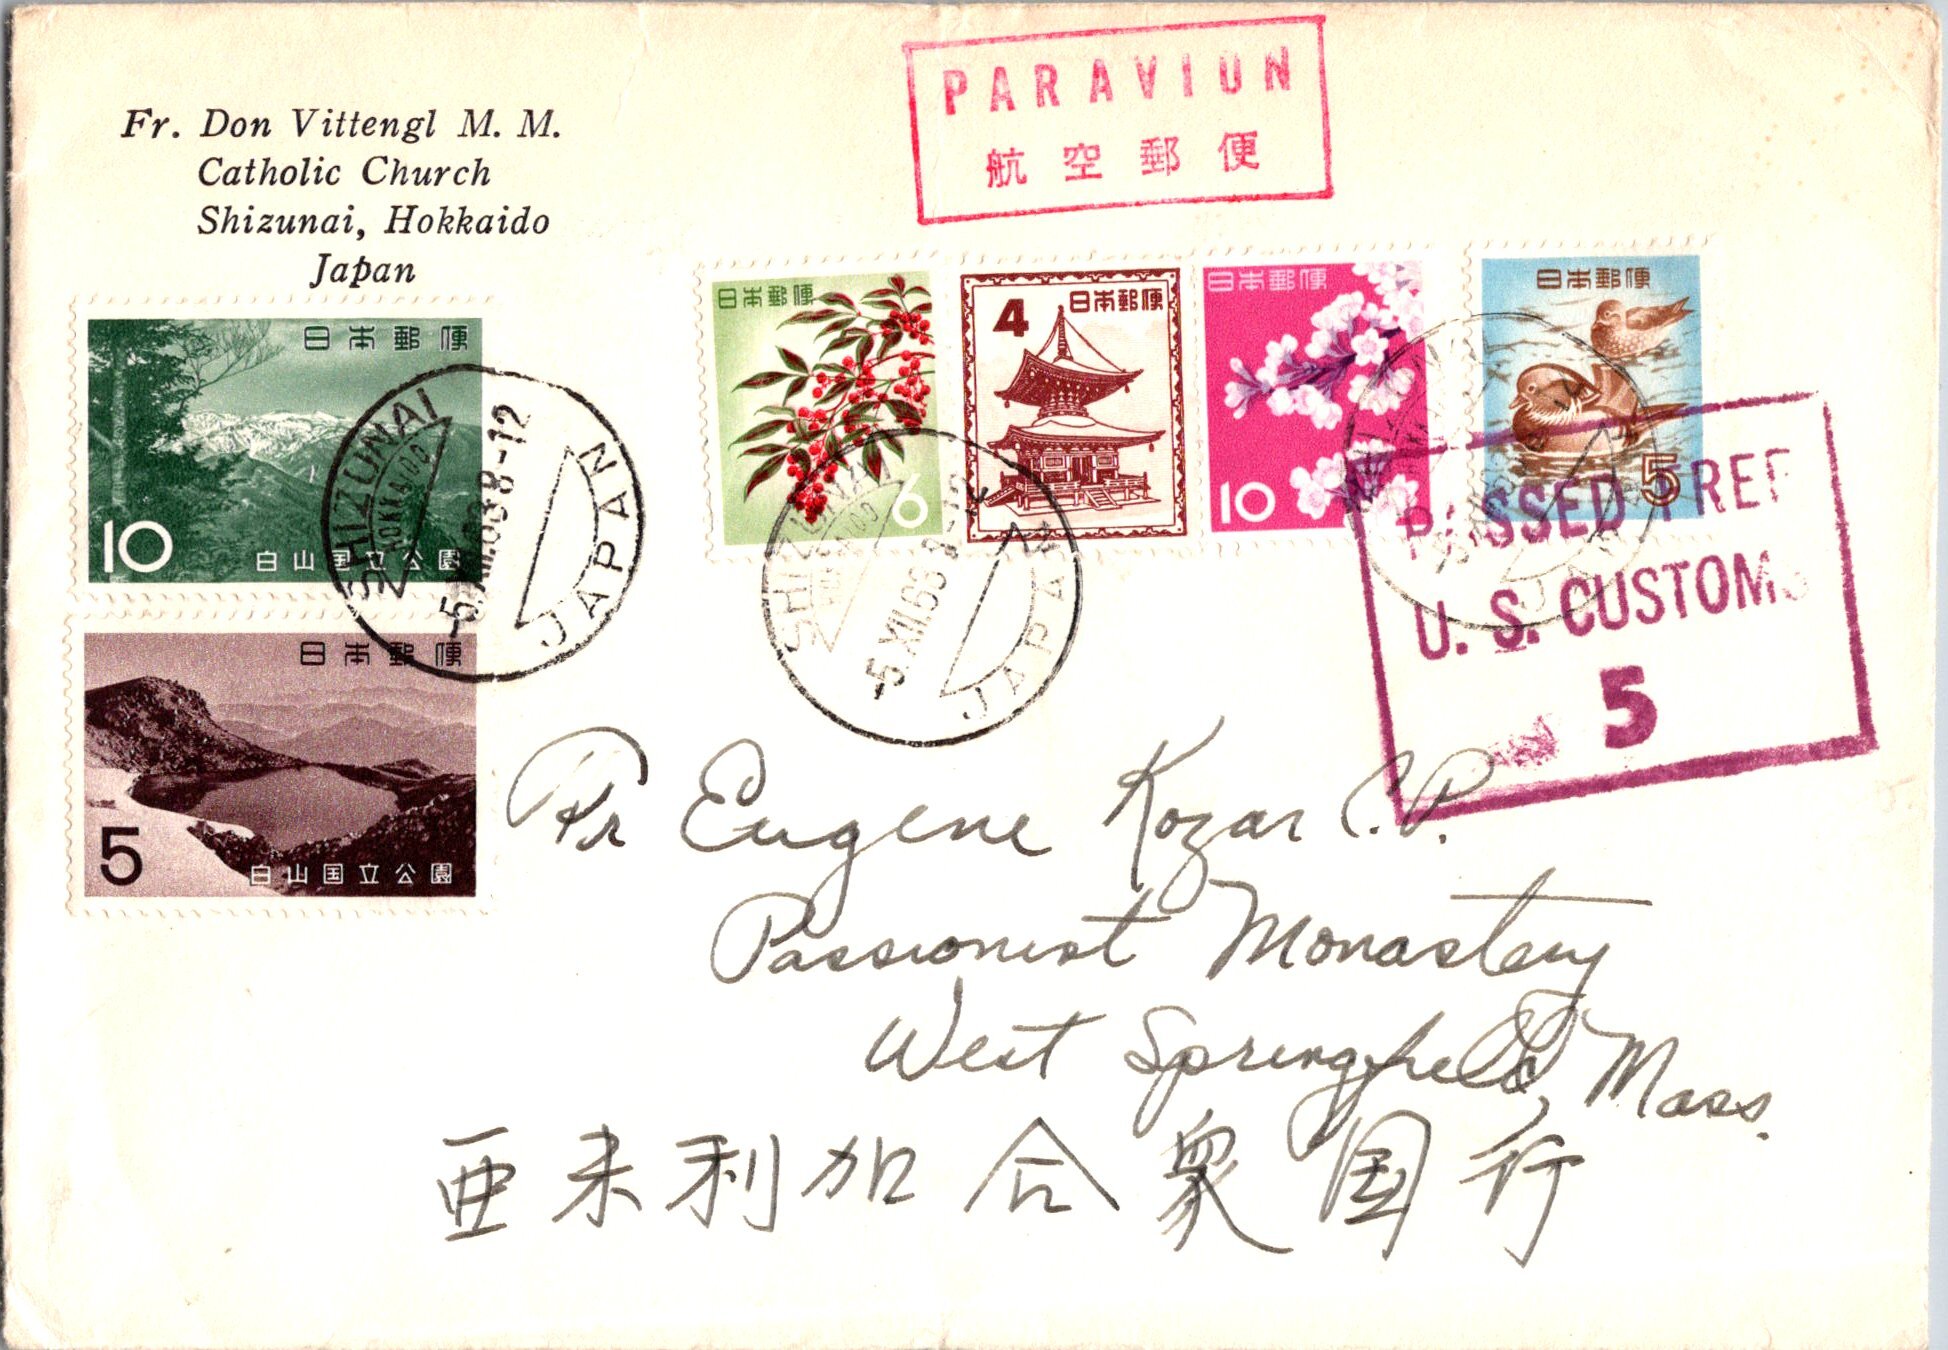 PAR AVION
航空郵便
Fr. Don Vittengl M. M.
Catholic Church
Shizunai, Hokkaido
Japan
日本郵便
10
白山国立公園
日本郵便
5
白山国立公園
日本郵便
6
4
日本郵便
日本郵便
10
日本郵便
5
SHIZUNAI
HOKKAIDO
-5.XII.63 8-12
JAPAN
SHIZUNAI
-5.XII.63 8-12
JAPAN
PASSED FREE
U. S. CUSTOMS
5
Fr Eugene Kozar C.P.
Passionist Monastery
West Springfield, Mass.
亜未利加合衆国行